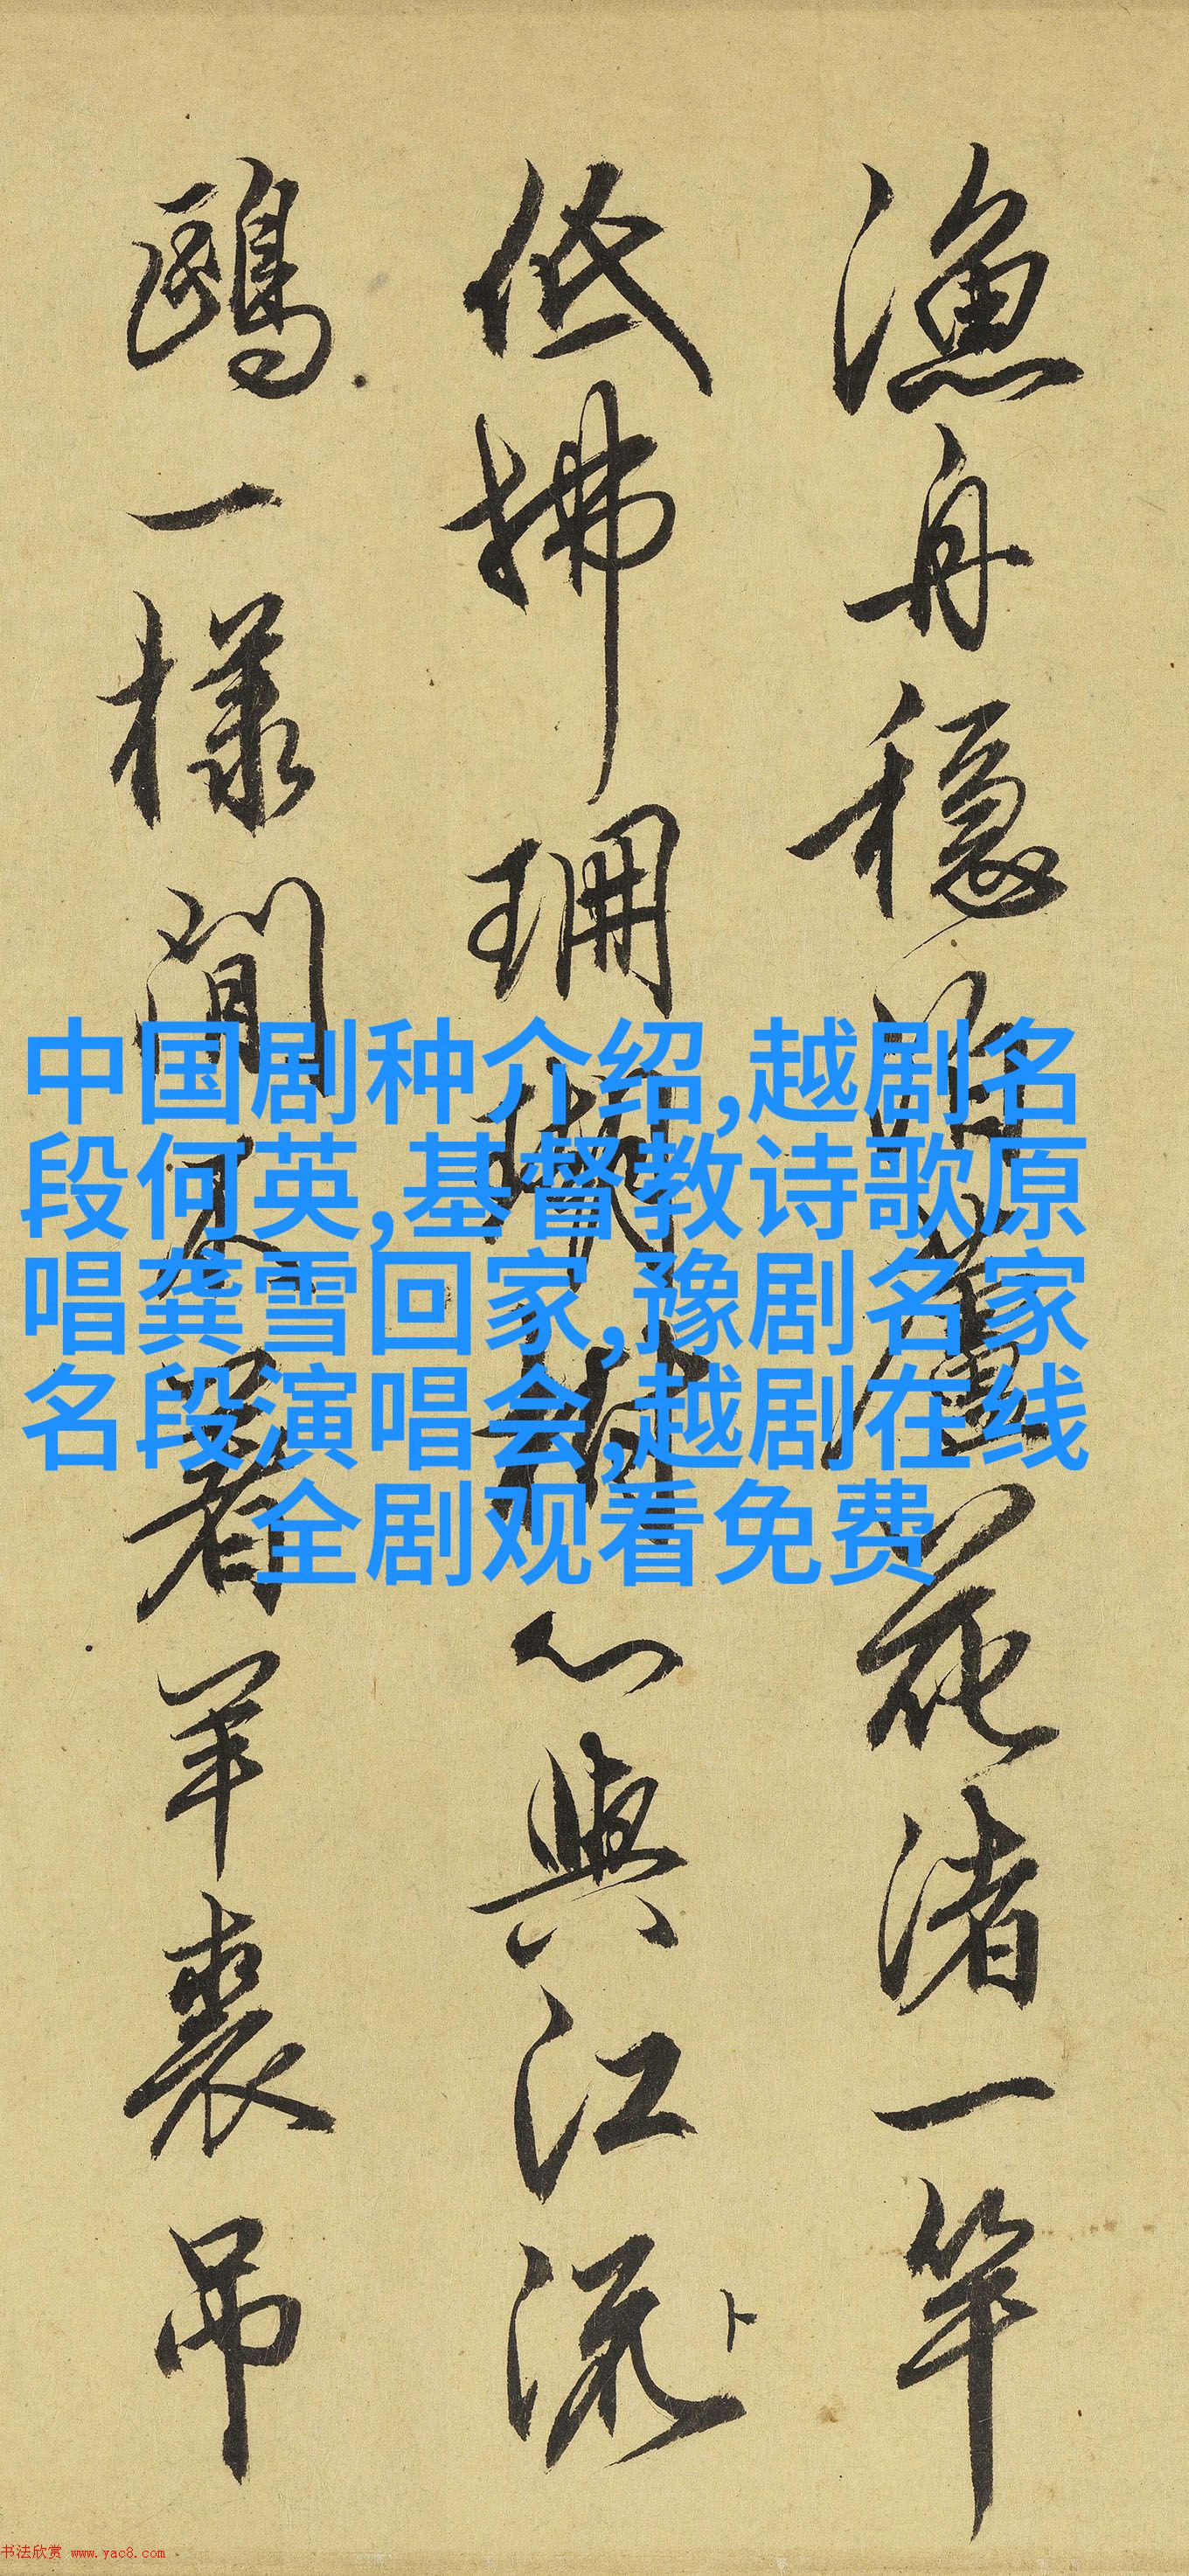 漁舟穩泊蘆花渚一竿
低拂珊瑚樹心與江流
鷗一樣閒不著羊裘吊
中国剧种介绍,越剧名
段何英,基督教诗歌原
唱龚雪回家,豫剧名家
名段演唱会,越剧在线
全剧观看免费
卜
书法欣赏 www.yac8.com